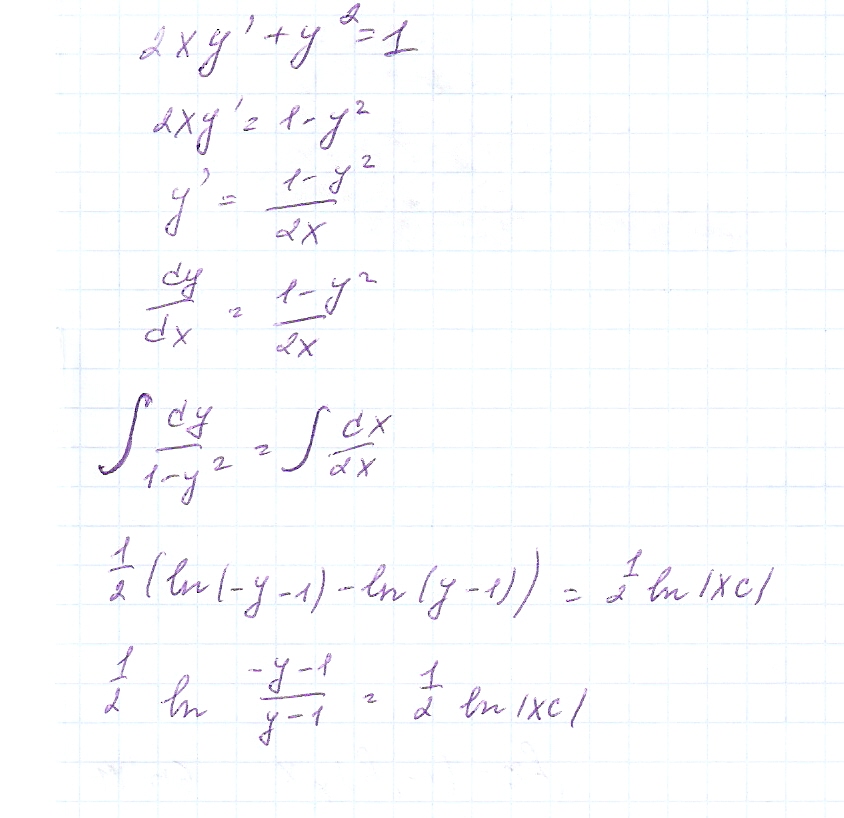 2xy' + y² = 1
2xy' = 1 - y²
y' = (1 - y²)/(2x)
dy/dx = (1 - y²)/(2x)
∫ dy/(1 - y²) = ∫ dx/(2x)
1/2 (ln(-y - 1) - ln(y - 1)) = 1/2 ln|xc|
1/2 ln (-y - 1)/(y - 1) = 1/2 ln|xc|